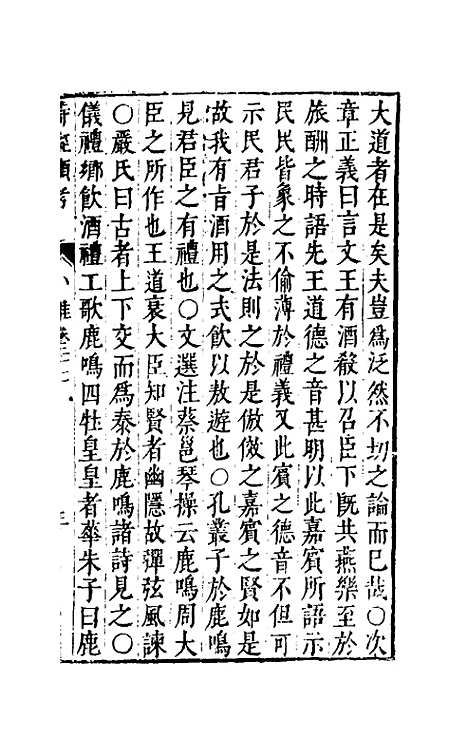 大道者在是矣夫豈爲泛然不切之論而巳哉○次
章正義曰言文王有酒殽以召臣下旣共燕樂至於
旅酬之時語先王道德之音甚明以此嘉賓所語示
民民皆象之不偷薄於禮義又此賓之德音不但可
示民君子於是法則之於是倣傚之嘉賓之賢如是
故我有㫖酒用之式飲以敖遊也○孔叢子於鹿鳴
見君臣之有禮也○文選注蔡邕琴操云鹿鳴周大
臣之所作也王道衰大臣知賢者幽隱故彈弦風諫
○嚴氏曰古者上下交而爲泰於鹿鳴諸詩見之○
儀禮鄉飲酒禮工歌鹿鳴四牡皇皇者華朱子曰鹿
詩經類考 小雅卷二十